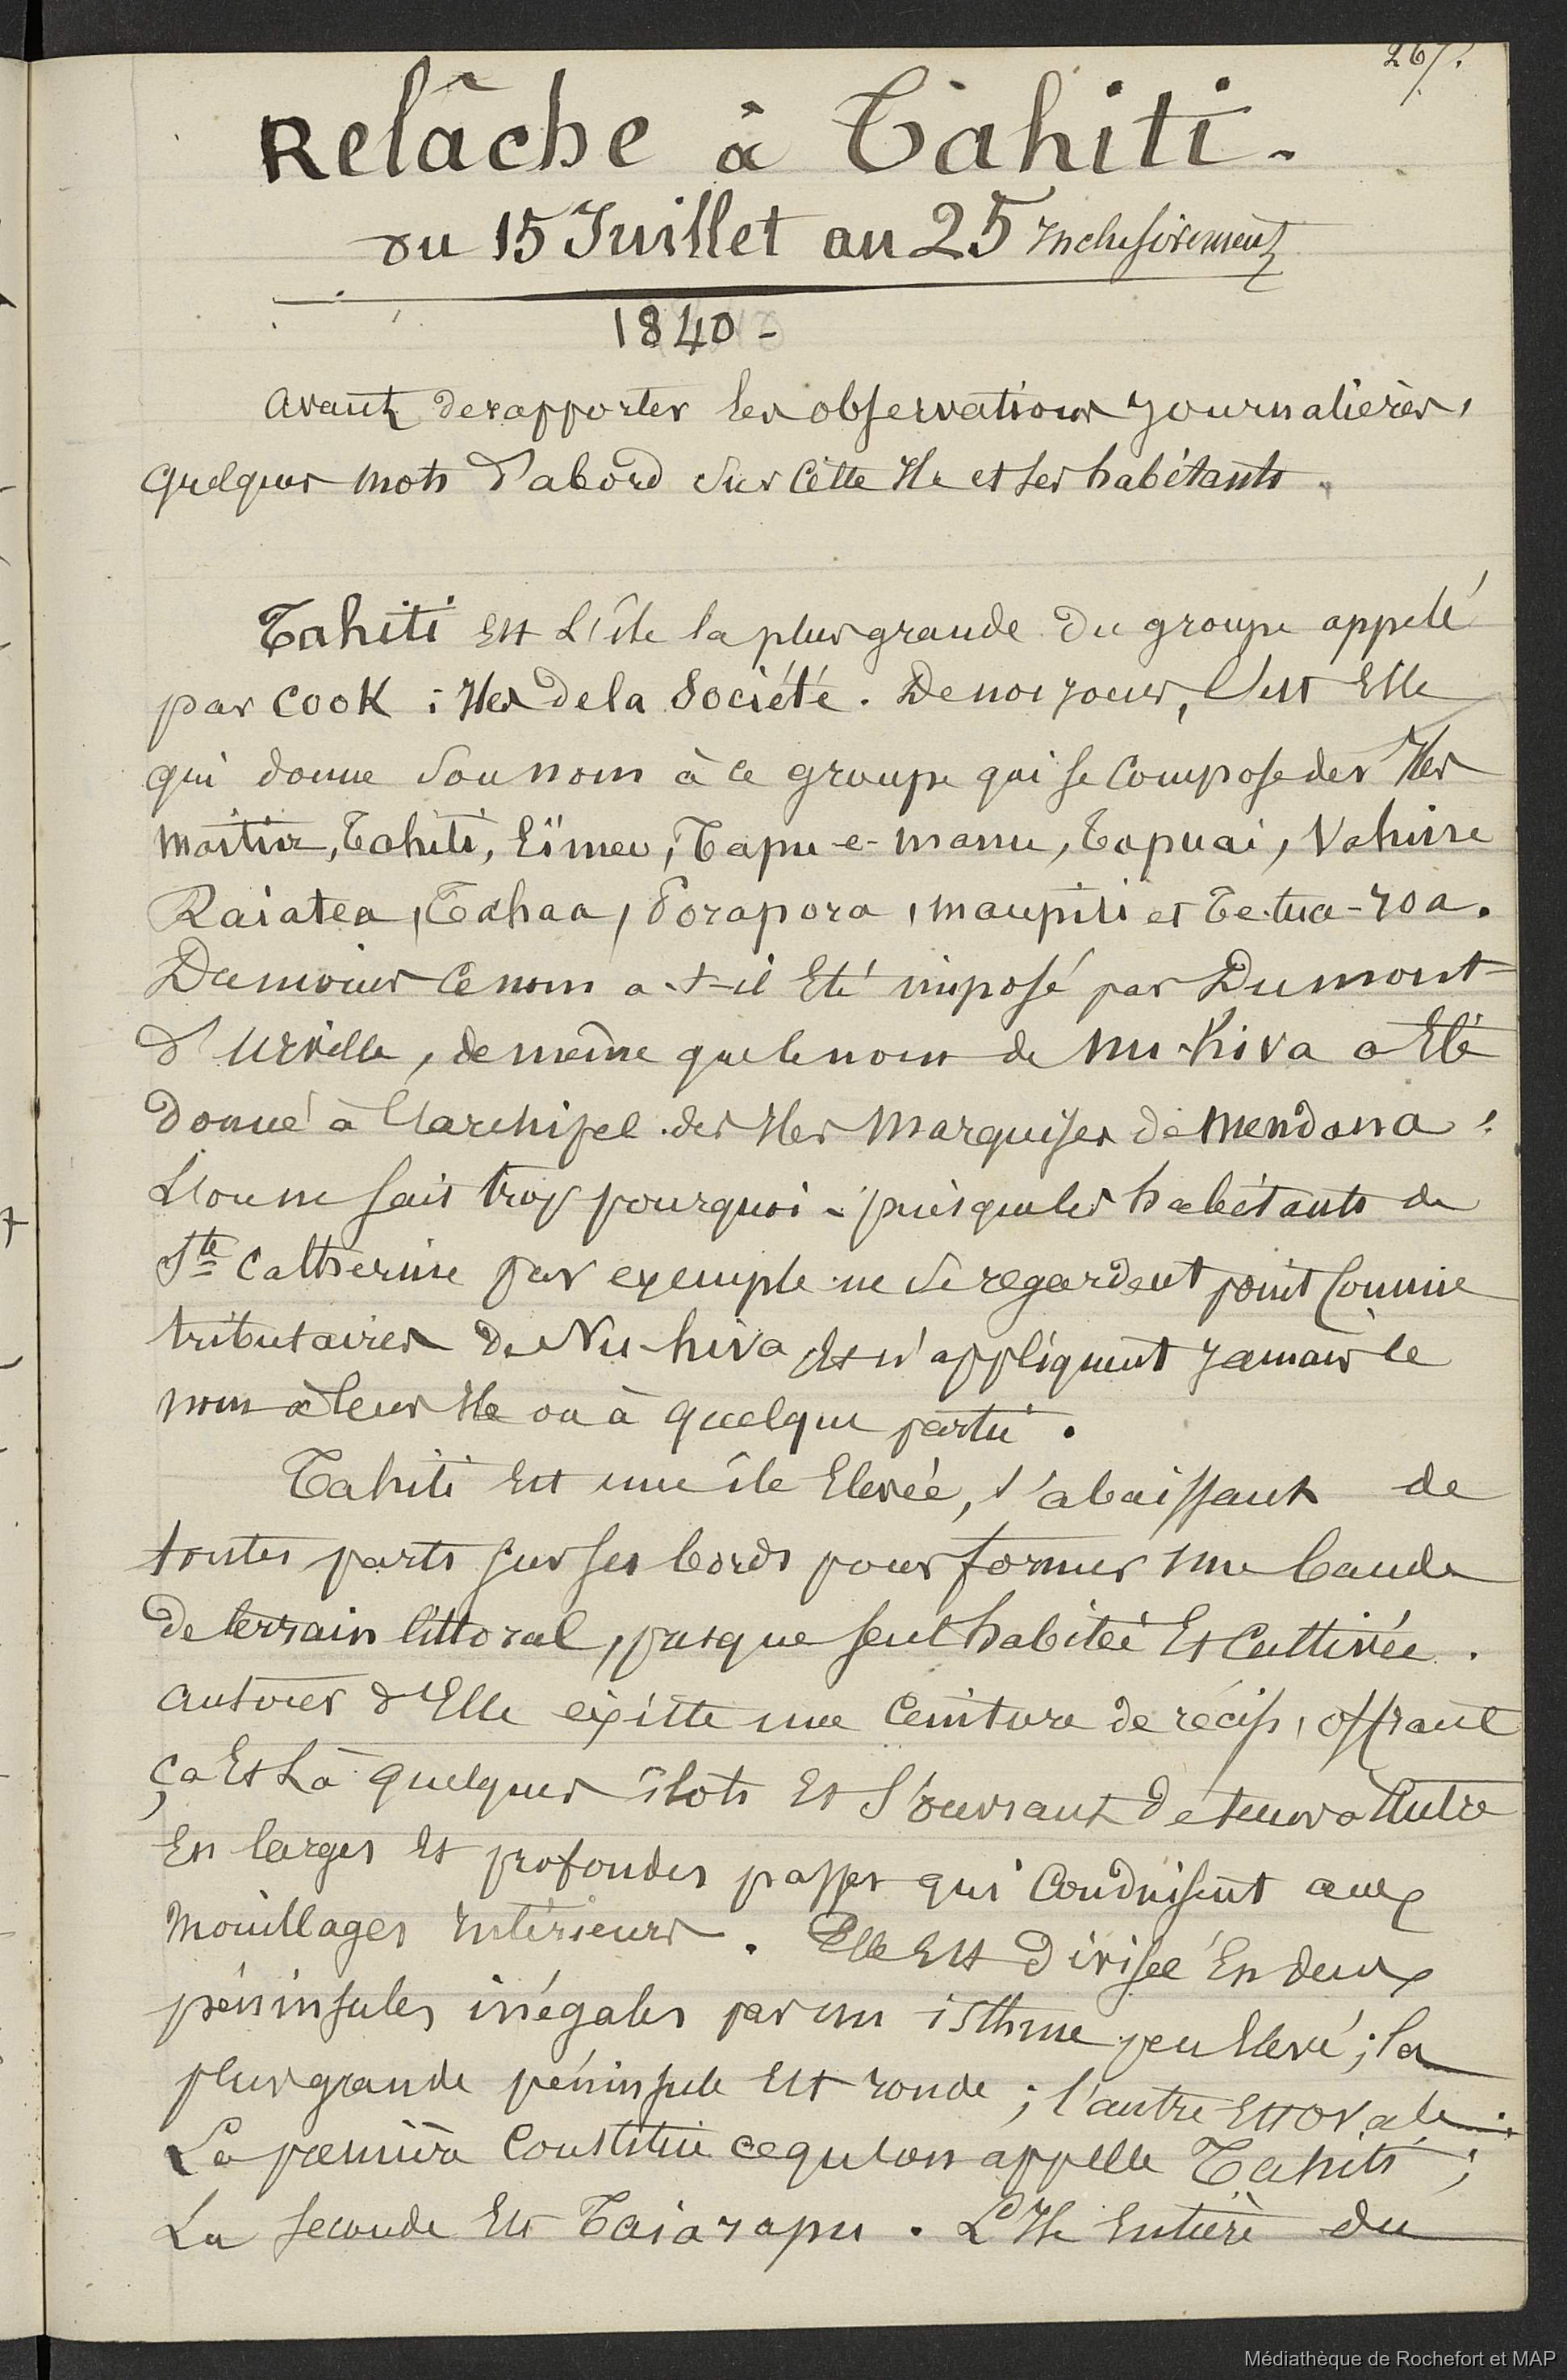 267.
Relâche à Tahiti.
du 15 Juillet au 25 Inclusivement
1840 -
avant de rapporter les observations journalières,
quelques mots d'abord sur cette Ile et ses habitants.
Tahiti est l'île la plus grande du groupe appelé
par Cook : Iles de la Société. De nos jours, c'est Elle
qui donne son nom à ce groupe qui se compose des Iles
Maitia, Tahiti, Eïmeo, Tapu-e-manu, Tapuai, Vahine
Raiatea, Tahaa, Porapora, maupiti et Te.tua-roa.
Du moins ce nom a-t-il Eté imposé par Dumont
d'Urville, de même que le nom de Nu-Hiva a Eté
donné à l'archipel des Iles Marquises de Mendana ;
L'on ne sait trop pourquoi - puisque les habitants de
Ste Catherine par exemple ne se regardent point comme
tributaires de Nu-hiva Et n'appliquent jamais le
nom à leur Ile ou à quelque partie.
Tahiti Est une île Elevée, s'abaissant de
toutes parts sur ses bords pour former une bande
de terrain littoral, presque seul habitée Et Cultivée.
autour d'Elle existe une Ceinture de récifs, offrant
ça Et Là quelques îlots Et s'ouvrant de temps à Autre
En larges Et profondes passes qui Conduisent aux
Mouillages Intérieurs. Elle Est divisée En deux
péninsules inégales par un isthme peu Elevé ; la
plus grande péninsule Est ronde ; l'autre Est Ovale :
La première Constitue ce qu'on appelle Tahiti ;
La seconde Est Taiarapu. L'Ile Entière du
Médiathèque de Rochefort et MAP